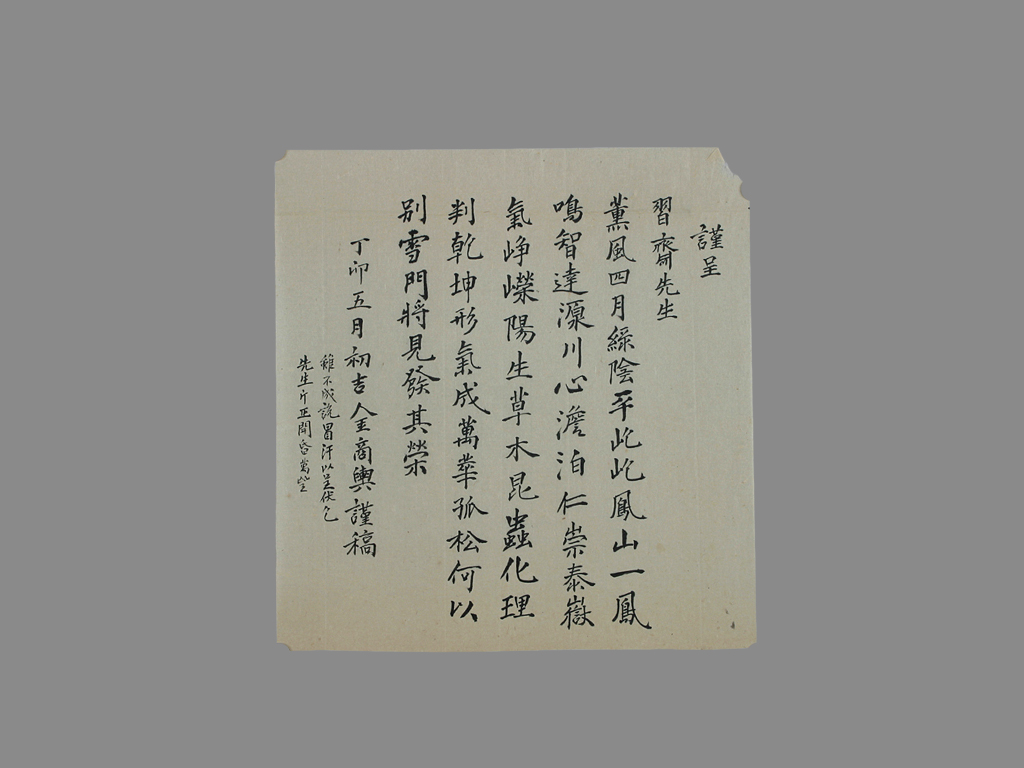 謹呈
習齋先生
薰風四月綠陰平屹屹鳳山一鳳
鳴智達源川心澹泊仁崇泰嶽
氣崢嶸陽生草木昆蟲化理
判乾坤形氣成萬華孤松何以
別雪門將見發其榮
丁卯五月初吉金商輿謹稿
雖不成說冒汗以呈伏乞
先生斤正開昏萬望